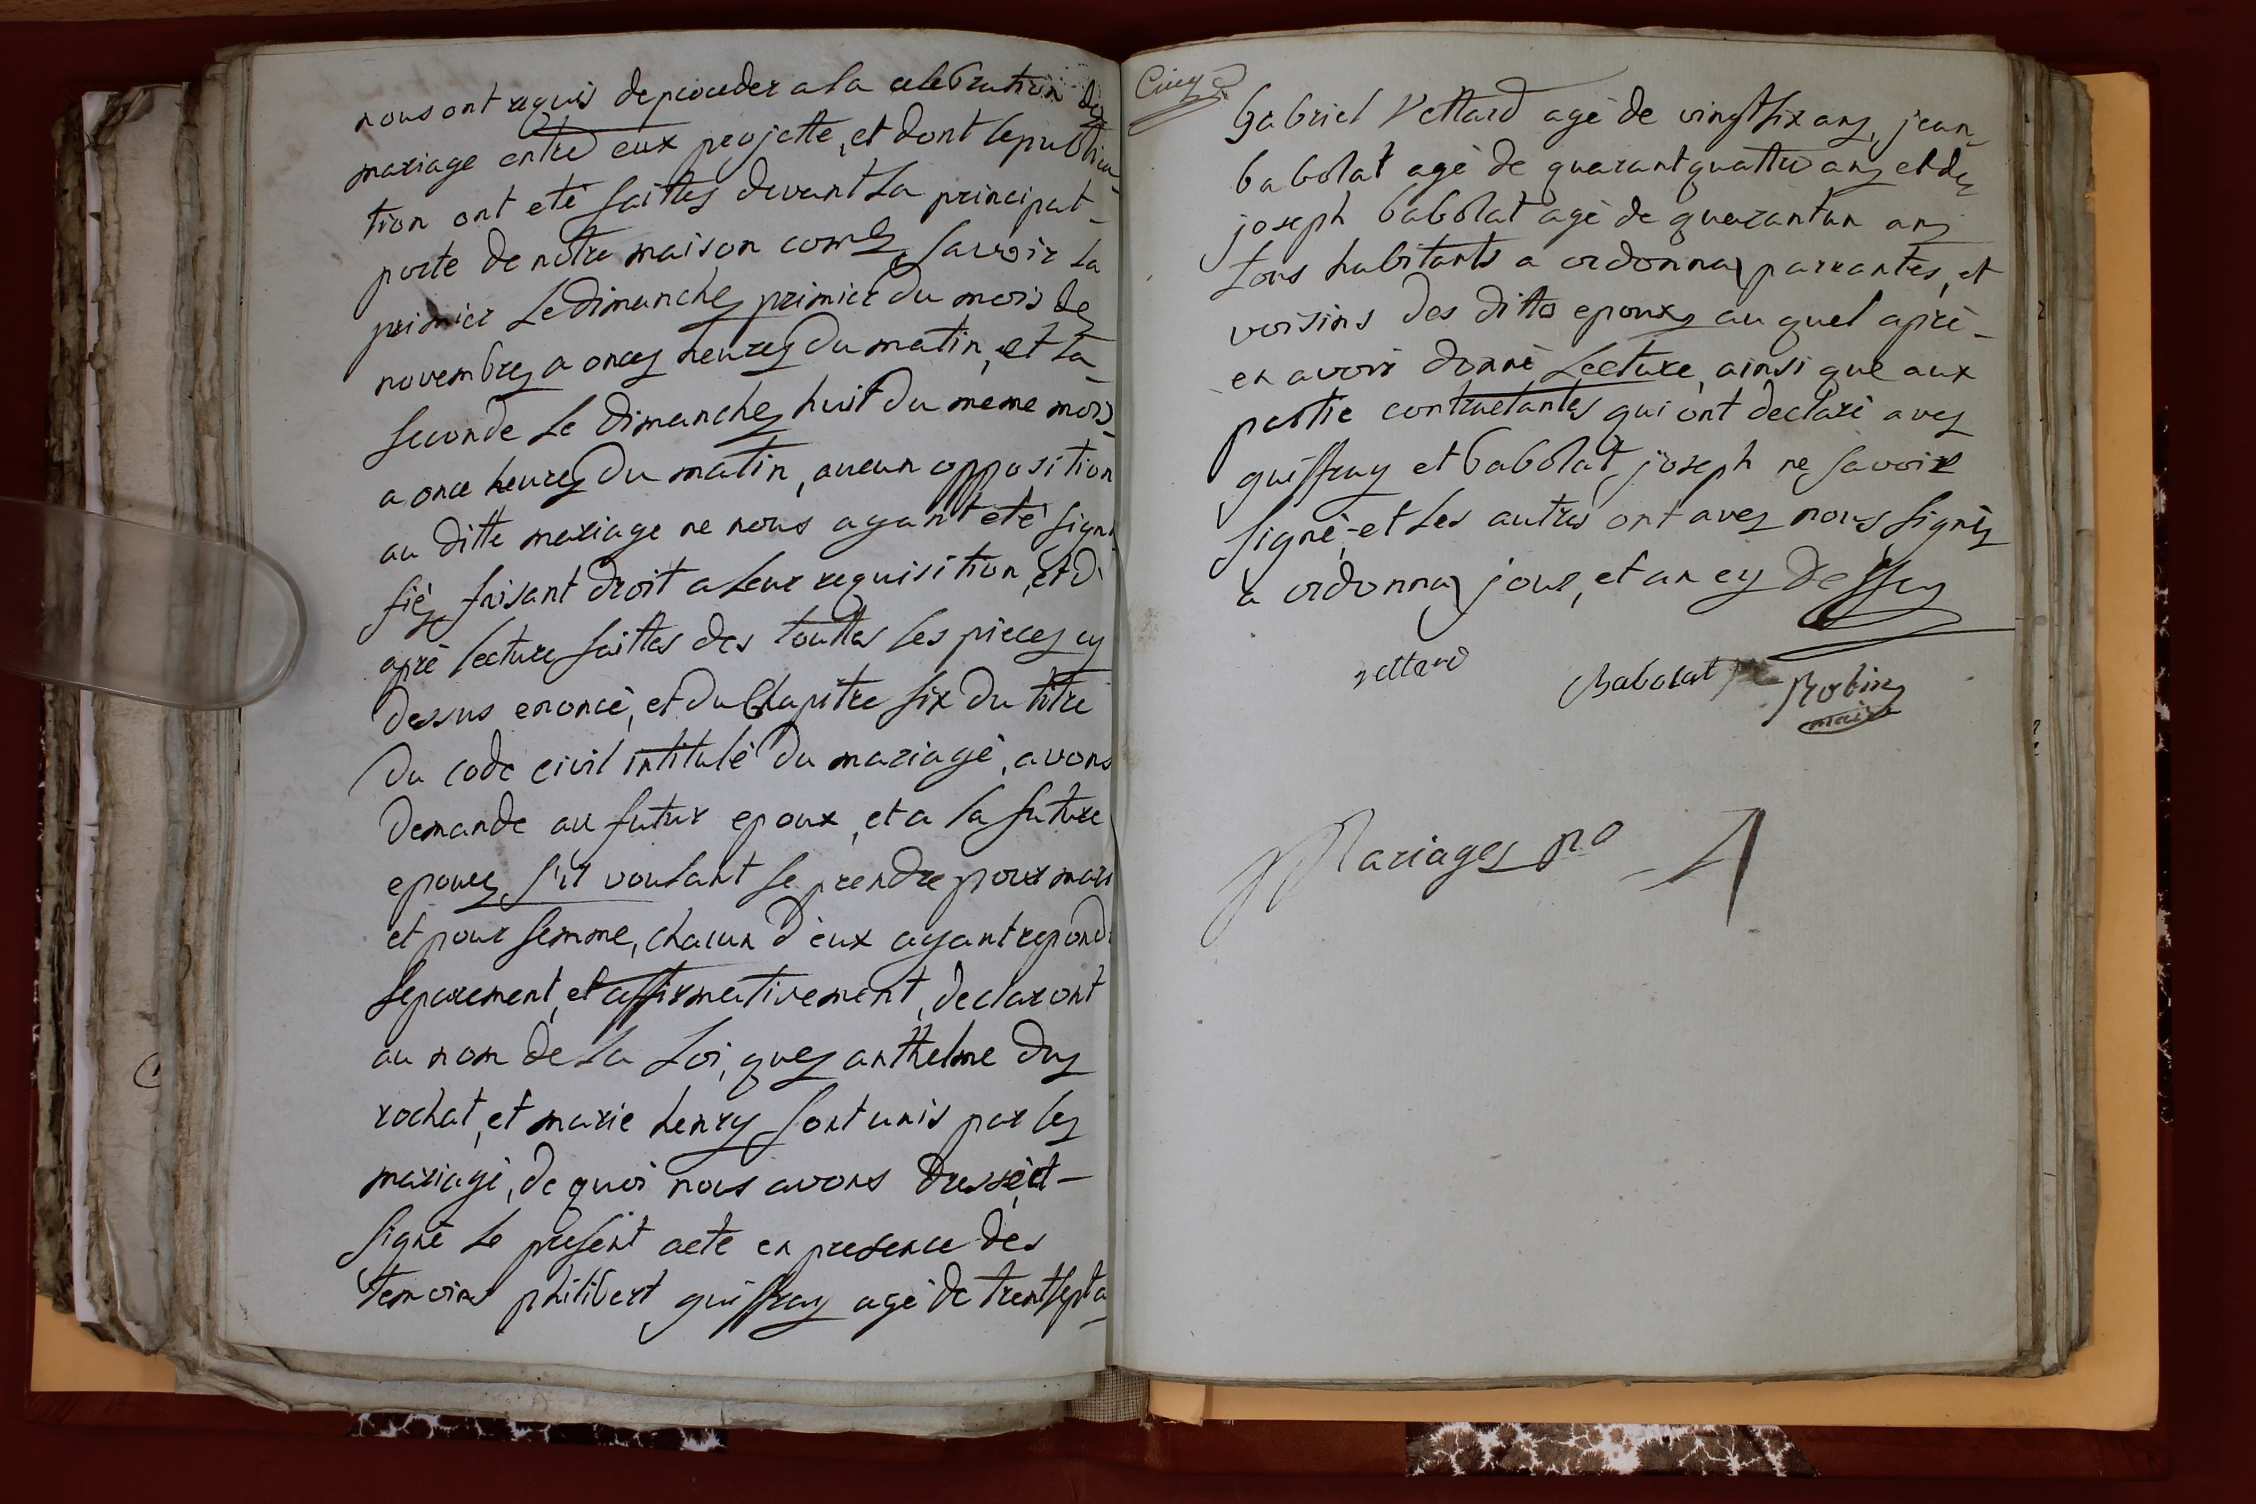 nous ont requis deproceder a la celebration de
mariage entre eux projette, et dont le publica-
tion ont eté faittes devant la principat-
porte de notre maison come, savoir la
primier le dimanche primier du mois de
novembre a once heures du matin, et la-
seconde le dimanche huit du meme mois-
a once heures du matin, aucun opposition
au ditte mariage ne nous ayant eté signi
fié, faisant droit a leur requisition, et d
apré lecture faittes des touttes les pieces cy
dessus enoncé, et du chapitre six du titre
du code civil intitulé du mariagé, avons
demande au futur epoux, et a la future
epouce s'il voulant se prendre pour mari
et pour femme, chacun d'eux ayant repond
separement, et affirmativement, declaront
au nom de la loi, que anthelme du
rochat, et marie henry sont unis par le
mariagé, de quoi nous avons dressé et-
signé le present acte en presence des
temoins philibert guiffray agé de trentsept a-
Gabriel Vettard agé de vingt six ans, jean-
babolat agé de quarant quattre ans et de
joseph babolat agé de quarantun ans
tous habitants a ordonnax parrantes, et
voisins des ditto epoux au quel apré-
en avoir donné lecture, ainsi que aux
partie contractantes qui ont declaré avec
guiffray et babolat, joseph ne savoir
signé, et les autres ont avec nous signés
a ordonnax jour, et an cy dessu
vettard
Babolat
Robin
maire
Mariages no 4